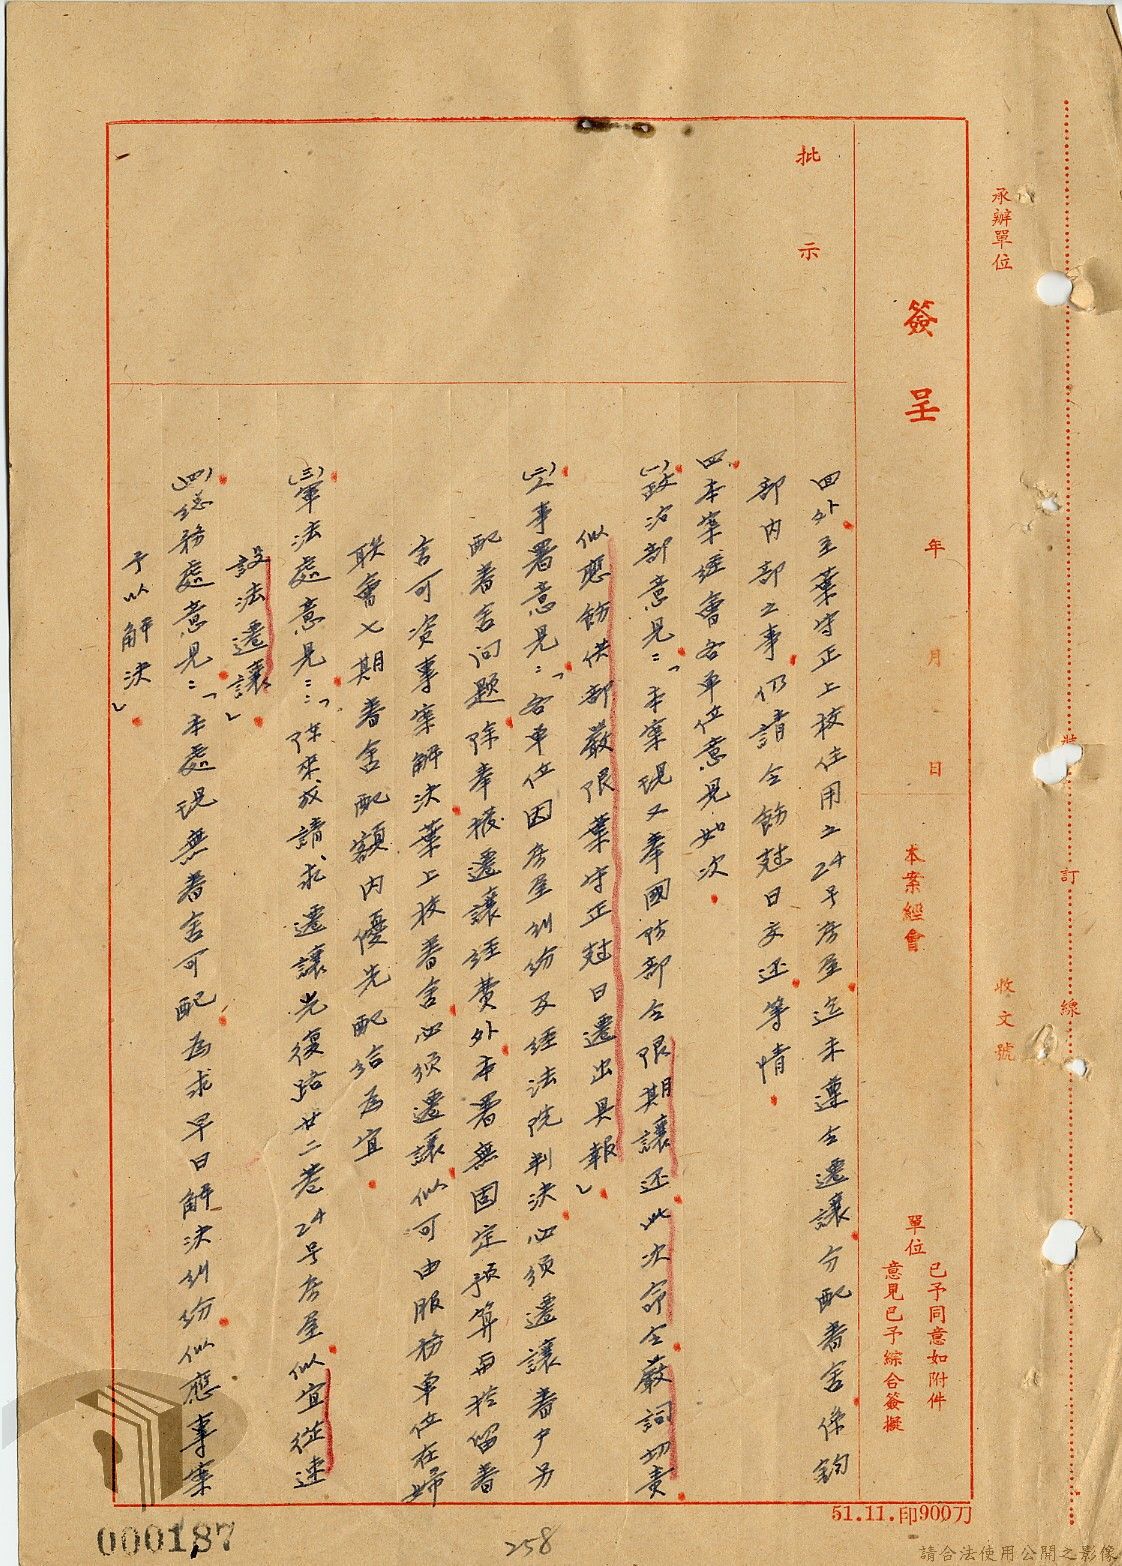 承辦單位
收文號
裝
訂
線
簽呈
年 月 日
本案經會
單位
已予同意如附件
意見已予綜合簽擬
批示
四外主葉守正上校住用之24号房屋迄未遵令遷讓分配眷舍係鈞
部內部之事仍請令飭尅日交还等情
四本案經會各單位意見如次
(一)政治部意見:「本案現又奉國防部令限期讓还此次命令嚴詞切責
似應飭供部嚴限葉守正尅日遷出具報」
(二)工事署意見:「各單位因房屋糾紛及經法院判決必須遷讓眷戶另
配眷舍问题除奉撥遷讓經費外本署無固定預算亦於留眷
舍可資專案解決葉上校眷舍必須遷讓似可由服務單位在婦
联會七期眷舍配額內優先配給為宜
(三)軍法處意見:「陈來成請求遷讓光復路廿二巷24号房屋似宜從速
設法遷讓」
(四)總務處意見:「本處現無眷舍可配為求早日解決糾紛似應專案
予以解決」
51.11.印900刀
000187
258
請合法使用公開之影像